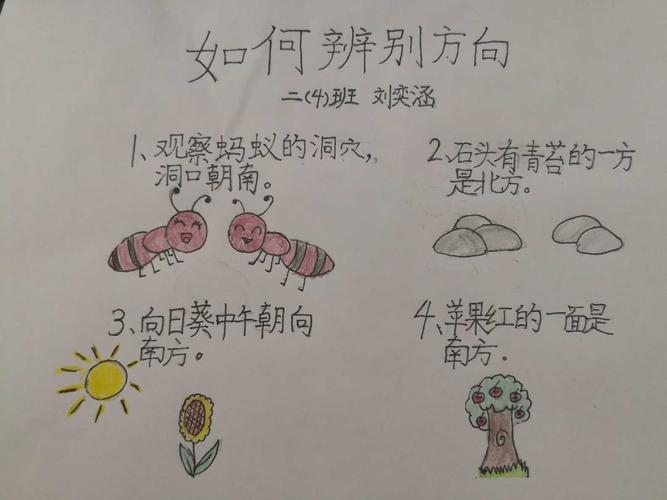 如何辨别方向
二(4)班 刘奕涵
1、观察蚂蚁的洞穴，
洞口朝南。
2、石头有青苔的一方
是北方。
3、向日葵中午朝向
南方。
4、苹果红的一面是
南方。